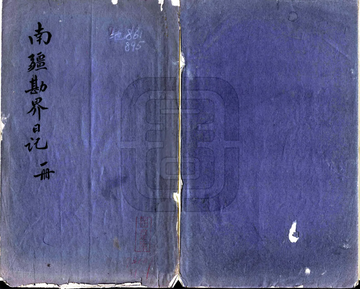 南疆勘界日记一册
861
895